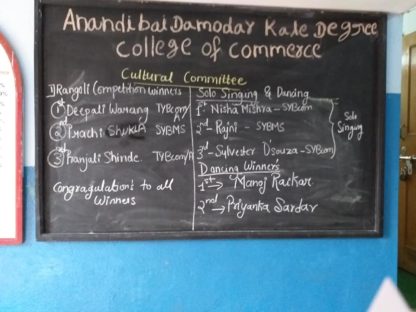 Anandibai Damodar Kale Degree
College of Commerce
Cultural Committee
1) Rangoli Competition Winners
1st Deepali Warang TYBcom/A
2nd Prachi Shukla SYBMS
3rd Pranjali Shinde TYBcom/A
Congragulations to all
Winners
Solo Singing & Dancing
1st - Nisha Mishra - SYBcom
2nd - Rajni - SYBMS
3rd - Sylvester D'souza - SYBcom
Solo
Singing
Dancing Winners
1st → Manoj Raikar
2nd → Priyanka Sardar